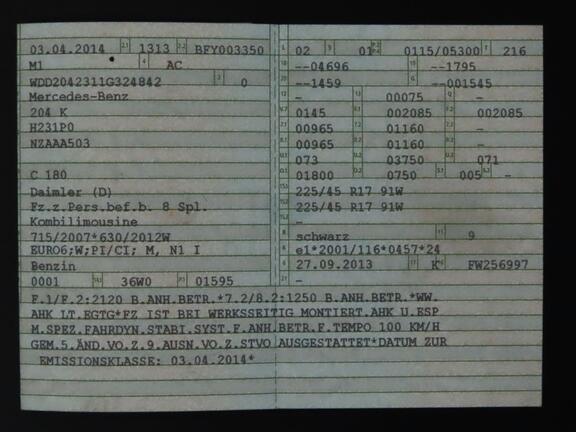 03.04.2014 2.1 1313 2.2 BFY003350
M1 4 AC
WDD2042311G324842 3 0
Mercedes-Benz
204 K
H231P0
NZAAA503
C 180
Daimler (D)
Fz.z.Pers.bef.b. 8 Spl.
Kombilimousine
715/2007*630/2012W
EURO6;W;PI/CI; M, N1 I
Benzin
0001 14.1 36W0 P.1 01595
L 02 9 01 P.2 P.4 0115/05300 T 216
18 --04696 19 --1795
20 --1459 G --001545
12 - 13 00075 Q -
V.7 0145 F.1 002085 F.2 002085
7.1 00965 7.2 01160 7.3 -
8.1 00965 8.2 01160 8.3 -
U.1 073 U.2 03750 U.3 071
O.1 01800 O.2 0750 S.1 005 S.2 -
15.1 225/45 R17 91W
15.2 225/45 R17 91W
15.3 -
R schwarz 11 9
K e1*2001/116*0457*24
6 27.09.2013 17 K 16 FW256997
21 -
F.1/F.2:2120 B.ANH.BETR.*7.2/8.2:1250 B.ANH.BETR.*WW.
AHK LT.EGTG*FZ IST BEI WERKSSEITIG MONTIERT.AHK U.ESP
M.SPEZ.FAHRDYN.STABI.SYST.F.ANH.BETR.F.TEMPO 100 KM/H
GEM.5.ÄND.VO.Z.9.AUSN.VO.Z.STVO AUSGESTATTET*DATUM ZUR
EMISSIONSKLASSE: 03.04.2014*